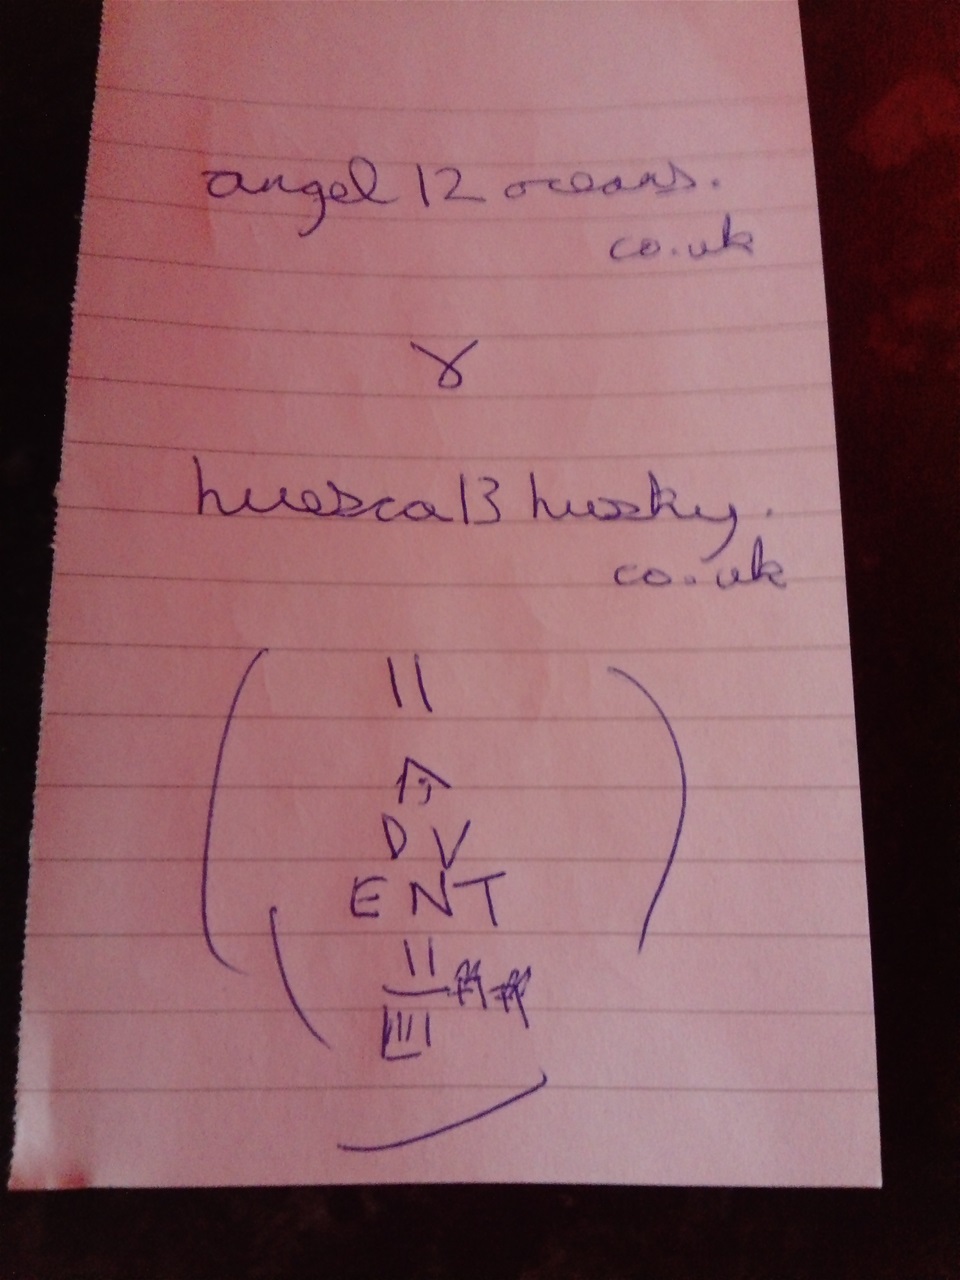 angel 12 oceans.
co.uk
huesca 13 husky.
co.uk
11
D V
E N T
11